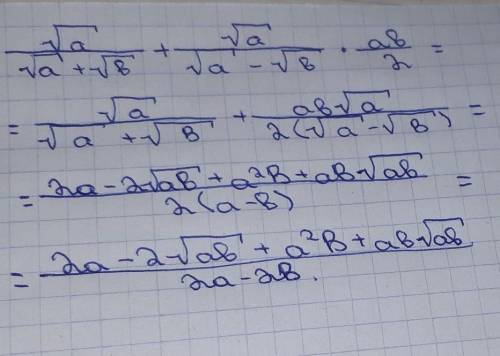 √a / (√a + √b) + √a / (√a − √b) · ab / 2 =
= √a / (√a + √b) + ab√a / (2(√a − √b)) =
= (2a − 2√ab + a²b + ab√ab) / (2(a − b)) =
= (2a − 2√ab + a²b + ab√ab) / (2a − 2b).